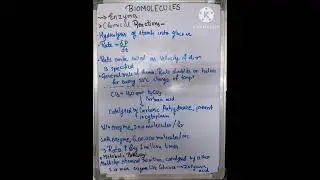 BIOMOLECULES
→ Enzymes
→ Chemical Reactions –
Hydrolysis of starch into glucose
Rate = δP
δt
Rate can be called as velocity if dirn
is specified
General rule of thumb: Rate doubles or halves
for every 10°C change of temp
CO₂ + H₂O ⇌ H₂CO₃
Carbonic acid
Catalysed by Carbonic Anhydrase, present
in cytoplasm
W/o enzyme, 200 molecules/hr
with enzyme, 6,00,000 molecules/sec
→ Rate ↑ by 1 million times
→ Metabolic Pathway
Multistep chemical reaction, catalysed by either
same enzyme like Glucose → 2 Pyruvic
acid